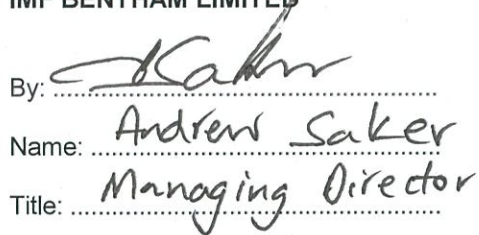 IMF BENTHAM LIMITED
By: ................
Name: Andrew Saker
Title: Managing Director